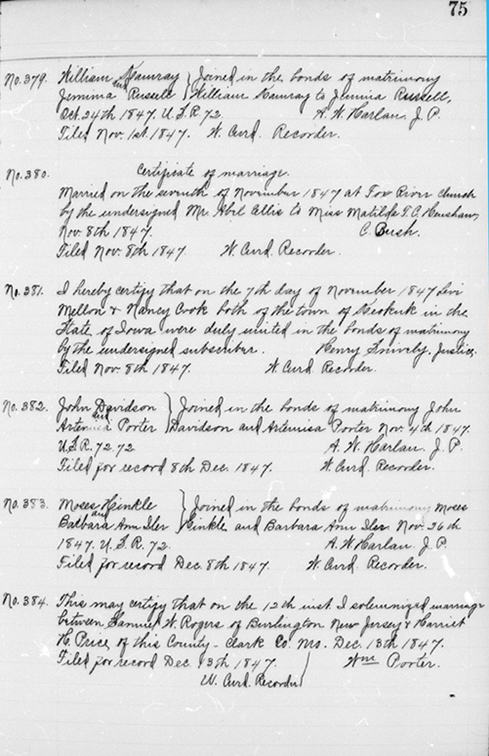 75
No. 379. William Kamray } Joined in the bonds of matrimony
and
Jemima Russell } William Kamray to Jemima Russell,
Oct. 24th 1847. U.S.R. 72. A. W. Harlan, J. P.
Filed Nov. 1st. 1847. W. Curd. Recorder.
No. 380. Certificate of marriage.
Married on the seventh of November 1847 at Fox River Church
by the undersigned Mr. Abil Ellis to Miss Matilda T. C. Henshaw,
Nov. 8th 1847. C. Bush.
Filed Nov. 8th 1847. W. Curd. Recorder.
No. 381. I hereby certify that on the 7th day of November 1847 Levi
Melton & Nancy Cook both of the town of Keokuk in the
State of Iowa were duly united in the bonds of matrimony
by the undersigned subscriber. Henry Snively, Justice.
Filed Nov. 8th 1847. W. Curd Recorder.
No. 382. John Davidson } Joined in the bonds of matrimony John
and
Artemisa Porter } Davidson and Artemisa Porter Nov. 4th 1847.
U.S.R. 72.72 A. W. Harlan, J. P.
Filed for record 8th Dec. 1847. W. Curd. Recorder.
No. 383. Moses Hinkle } Joined in the bonds of matrimony Moses
and
Barbara Ann Iler } Hinkle and Barbara Ann Iler Nov. 26th
1847. U.S.R. 72. A. W. Harlan. J. P.
Filed for record Dec. 8th 1847. W. Curd. Recorder.
No. 384. This may certify that on the 12th inst. I solemnized marriage
between Samuel W. Rogers of Burlington New Jersey & Harriet
H. Price, of this County - Clark Co. Mo. Dec. 13th 1847.
Filed for record Dec. 13th 1847. } Wm Porter.
W. Curd. Recorder